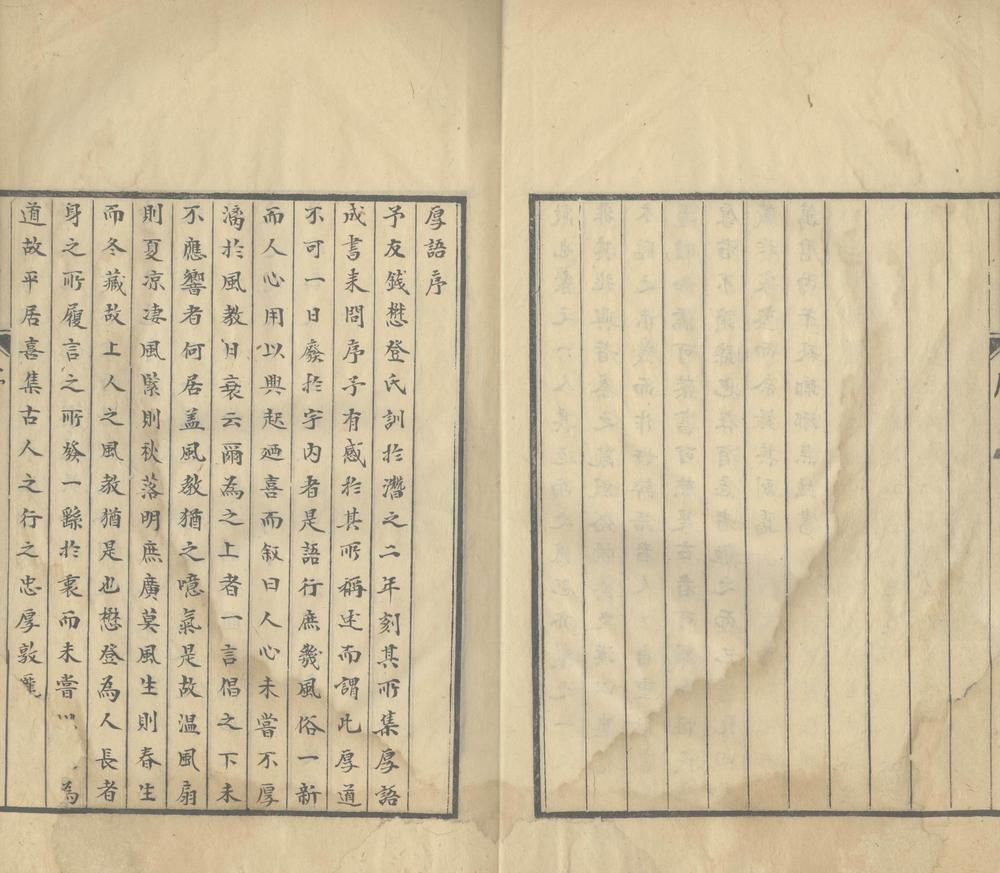 厚語序
予友錢懋登氏訓於濳之二年刻其所集厚語
成書来問序予有感於其所稱述而謂此厚道
不可一日廢於宇内者是語行庶幾風俗一新
而人心用以興起廼喜而敘曰人心未嘗不厚
漓於風教日衰云爾為之上者一言倡之下未
不應響者何居盖風教猶之噫氣是故温風扇
則夏凉凄風緊則秋落明庶廣莫風生則春生
而冬藏故上人之風教猶是也懋登為人長者
身之所履言之所發一繇於裏而未嘗 為
道故平居喜集古人之行之忠厚敦